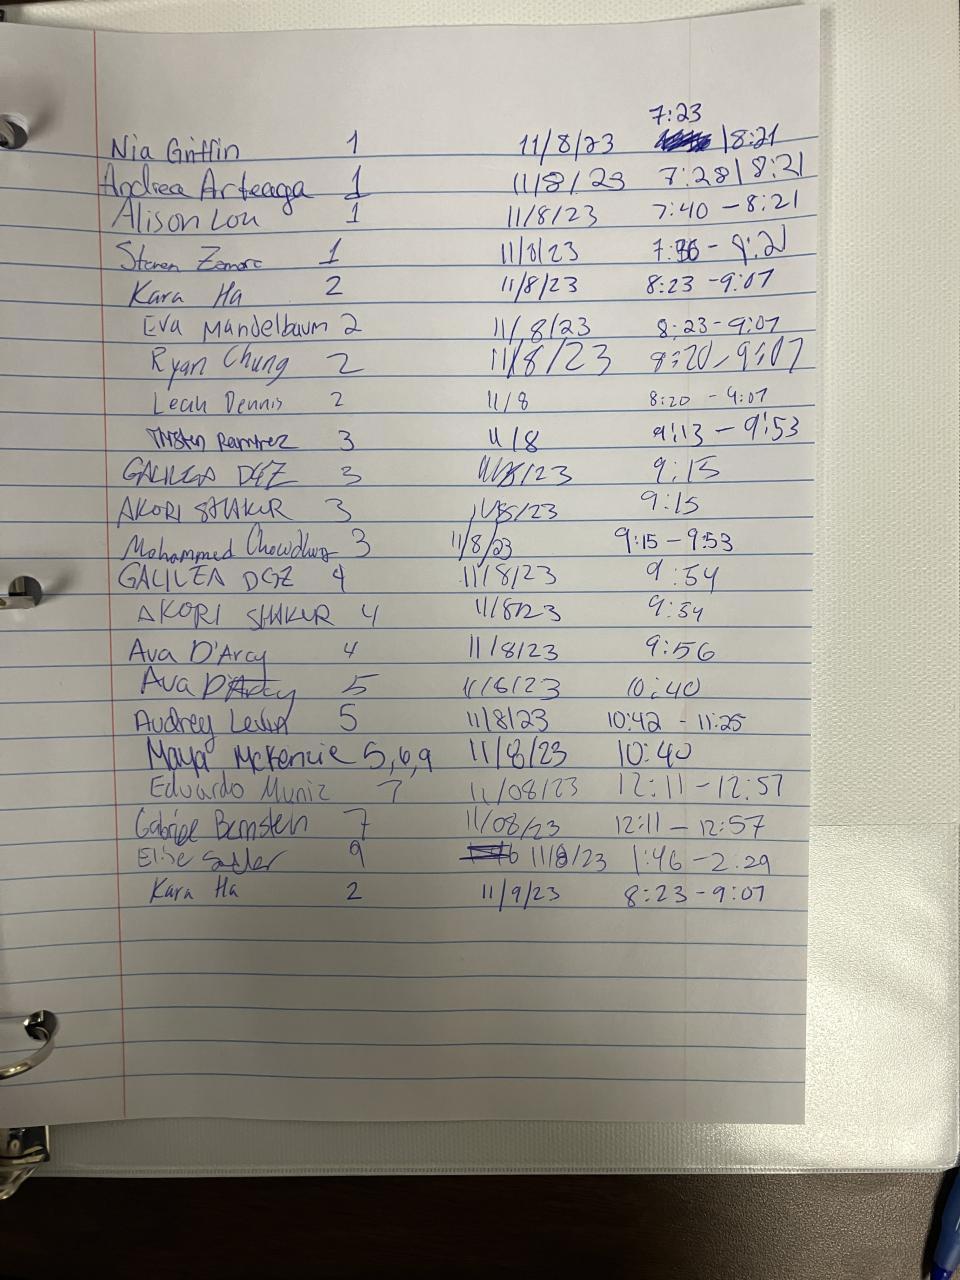 7:23
Nia Griffin 1 11/8/23 |8:21
Andrea Arteaga 1 11/8/23 7:28|8:21
Alison Lou 1 11/8/23 7:40 - 8:21
Steven 1 11/8/23
Kara Ha 2 11/8/23 8:23 -9:07
Eva Mandelbaum 2 11/8/23 8:23-9:07
Ryan Chung 2 11/8/23 8:20-9:07
Leah Dennis 2 11/8 8:20 - 9:07
Ramirez 3 11/8 9:13 - 9:53
GALILEA DGZ 3 11/8/23 9:15
AKORI SHAKUR 3 11/8/23 9:15
Mohammed Chowdhury 3 11/8/23 9:15-9:53
GALILEA DGZ 4 11/8/23 9:54
AKORI SHAKUR 4 11/8/23 9:54
Ava D'Arcy 4 11/8/23 9:56
Ava D'Arcy 5 11/8/23 10:40
Audrey 5 11/8/23 10:42 - 11:25
Maya McKenzie 5,6,9 11/8/23 10:40
Eduardo Muniz 7 11/08/23 12:11-12:57
Gabriel Bernstein 7 11/08/23 12:11 - 12:57
Elise 9 11/8/23 1:46-2:29
Kara Ha 2 11/9/23 8:23-9:07